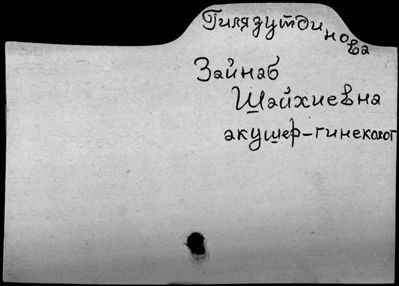 Гилязутдинова
Зайнаб
Шайхиевна
акушер-гинеколог